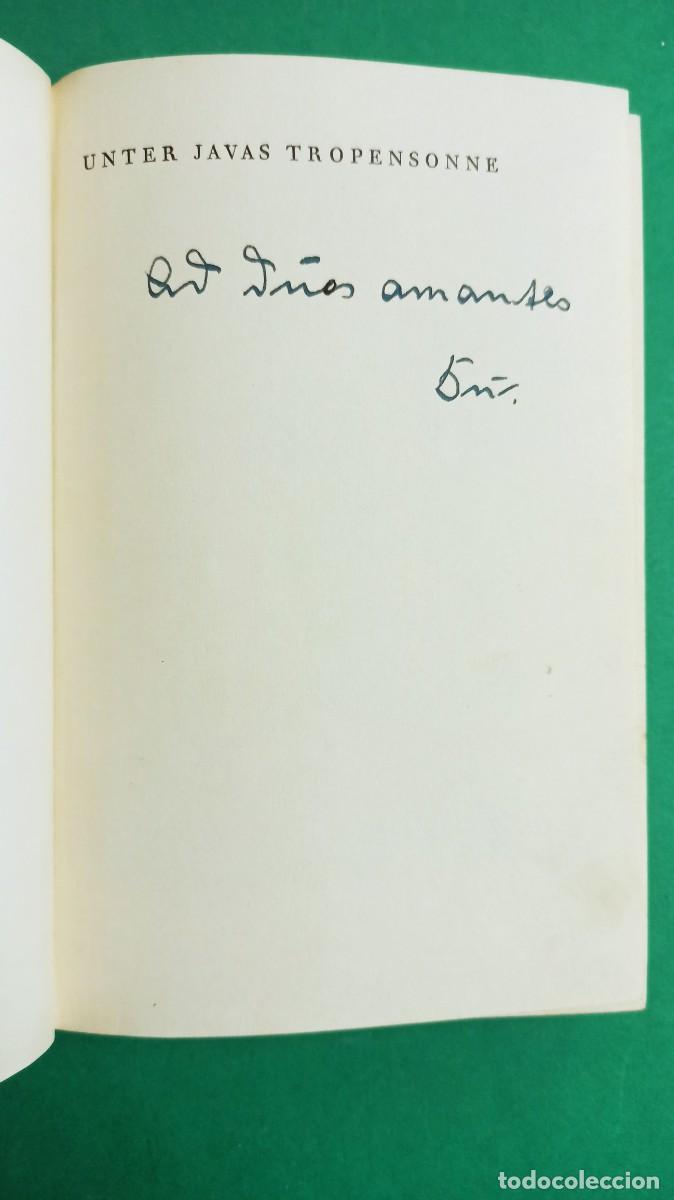 UNTER JAVAS TROPENSONNE
ad duos amantes
todocoleccion